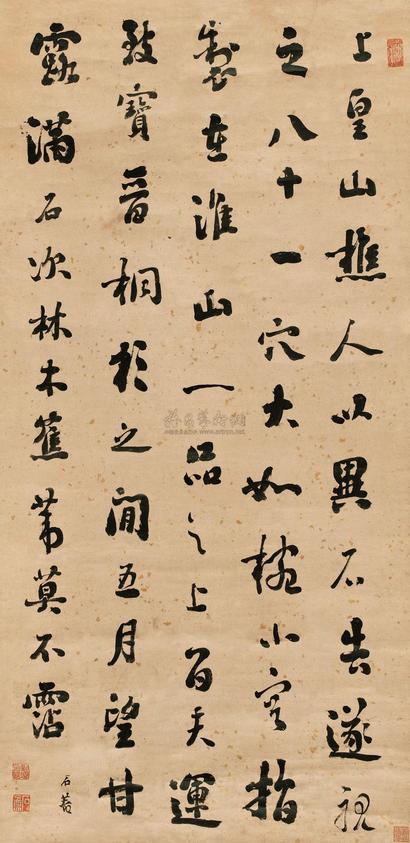 上皇山樵人以異石告遂視
之八十一穴大如椀小容指
製在淮山一品之上百夫運
致寶晉桐杉之間五月望甘
露滿石次林木蕉葦莫不霑
石菴